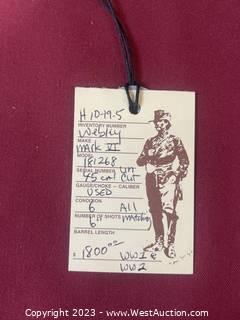 H 10-19-5
INVENTORY NUMBER
Webley
MAKE
MARK VI
MODEL
181268
SERIAL NUMBER
45 cal un cut
GAUGE/CHOKE - CALIBER
USED
CONDITION
6 All
NUMBER OF SHOTS matching
6"
BARREL LENGTH
$ 1800.00 WW1 &
WW2
Copyright 2023 - www.WestAuction.com